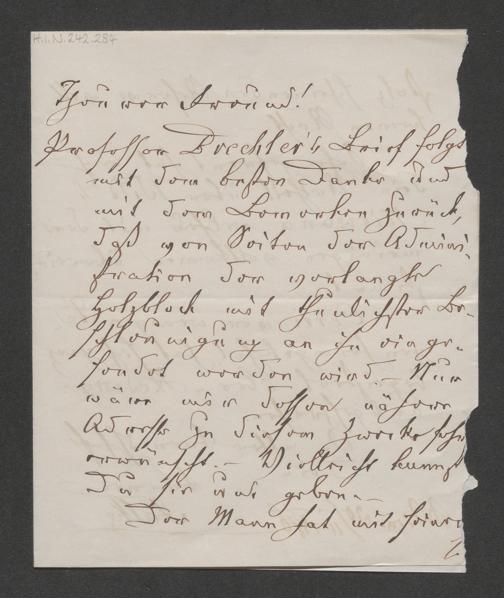 H.I.N. 242.284
Theurer Freund!
Professor Drechler's Brief folgt
mit dem besten Danke und
mit dem Bemerken zurück,
daß von Seiten der Admini-
stration der verlangte
Holzblock mit thunlichster Be-
schleunigung an ihn einge-
sendet werden wird. – Nur
wäre mir dessen nähere
Adresse zu diesem Zwecke sehr
erwünscht. – Vielleicht kannst
Du sie uns geben. –
Der Mann hat mit seiner